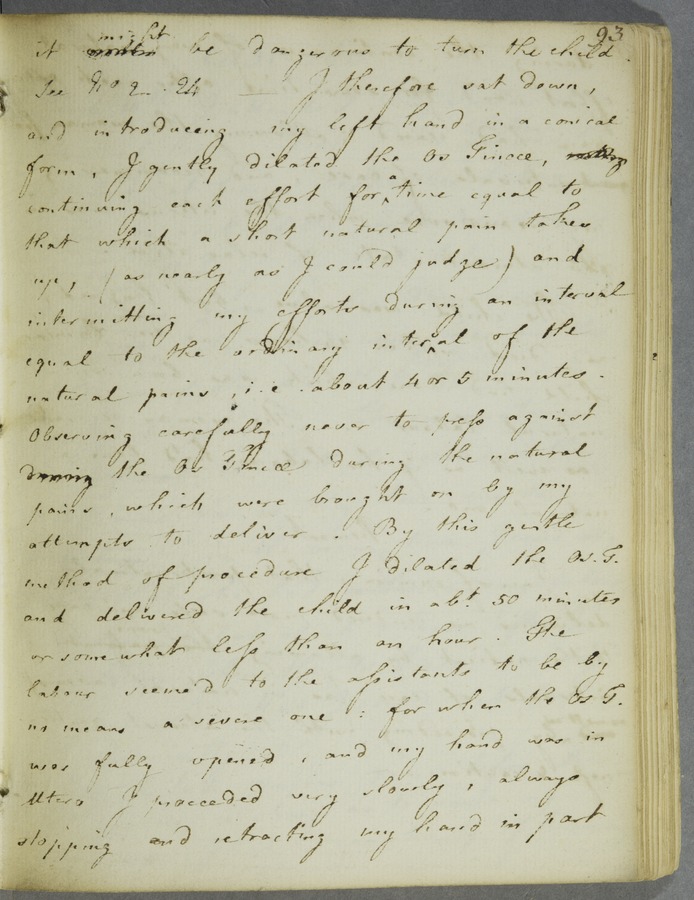 93
might
it would be dangerous to turn the child.
See No 2. 24 — I therefore sat down,
and introducing my left hand in a conical
form, I gently dilated the Os Tincæ,
continuing each effort for a time equal to
that which a short natural pain takes
up, (as nearly as I could judge) and
intermitting my efforts during an interval
equal to the ordinary interval of the
natural pains, i.e. about 4 or 5 minutes.
Observing carefully never to press against
during the Os Tincæ during the natural
pains, which were brought on by my
attempts to deliver. By this gentle
method of procedure I dilated the Os. T.
and delivered the child in abt. 50 minutes
or somewhat less than an hour. The
labour seemed to the assistants to be by
no means a severe one: for when the Os T.
was fully opened, and my hand was in
Utero I proceeded very slowly, always
stopping and retracting my hand in part